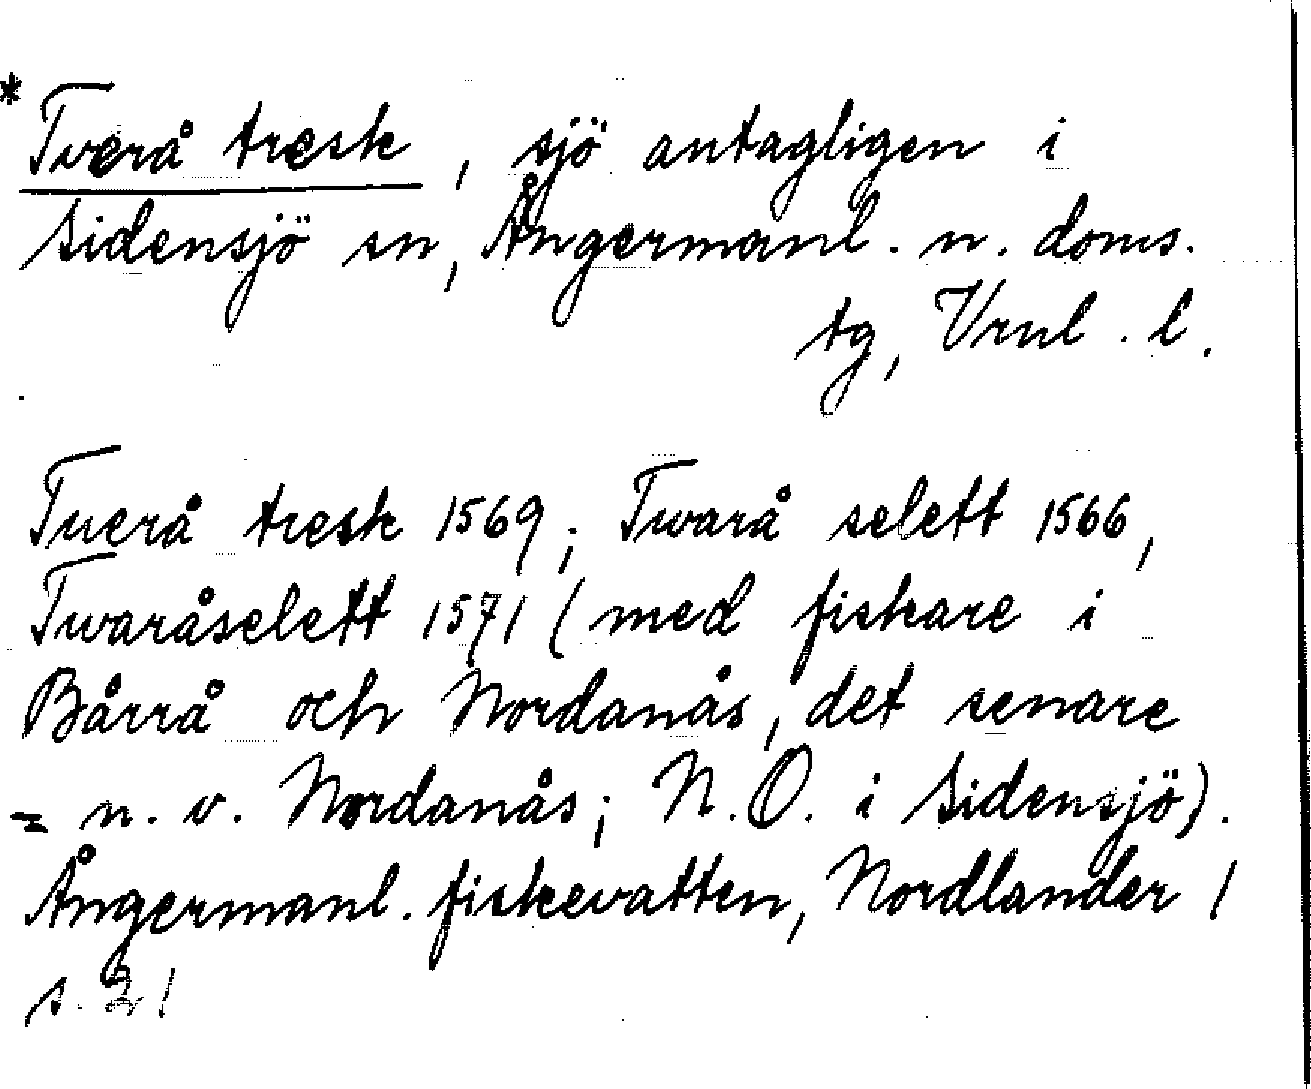 * Tverå tresk, sjö antagligen i
Sidensjö sn, Ångermanl. n. doms.
tg, Vrnl. l.
Tuerå tresk 1569; Twarå selett 1566,
Twaråselett 1571 (med fiskare i
Bårrå och Nordanås, det senare
= n. v. Nordanås; N.O. i Sidensjö).
Ångermanl. fiskevatten, Nordlander 1
s. 21